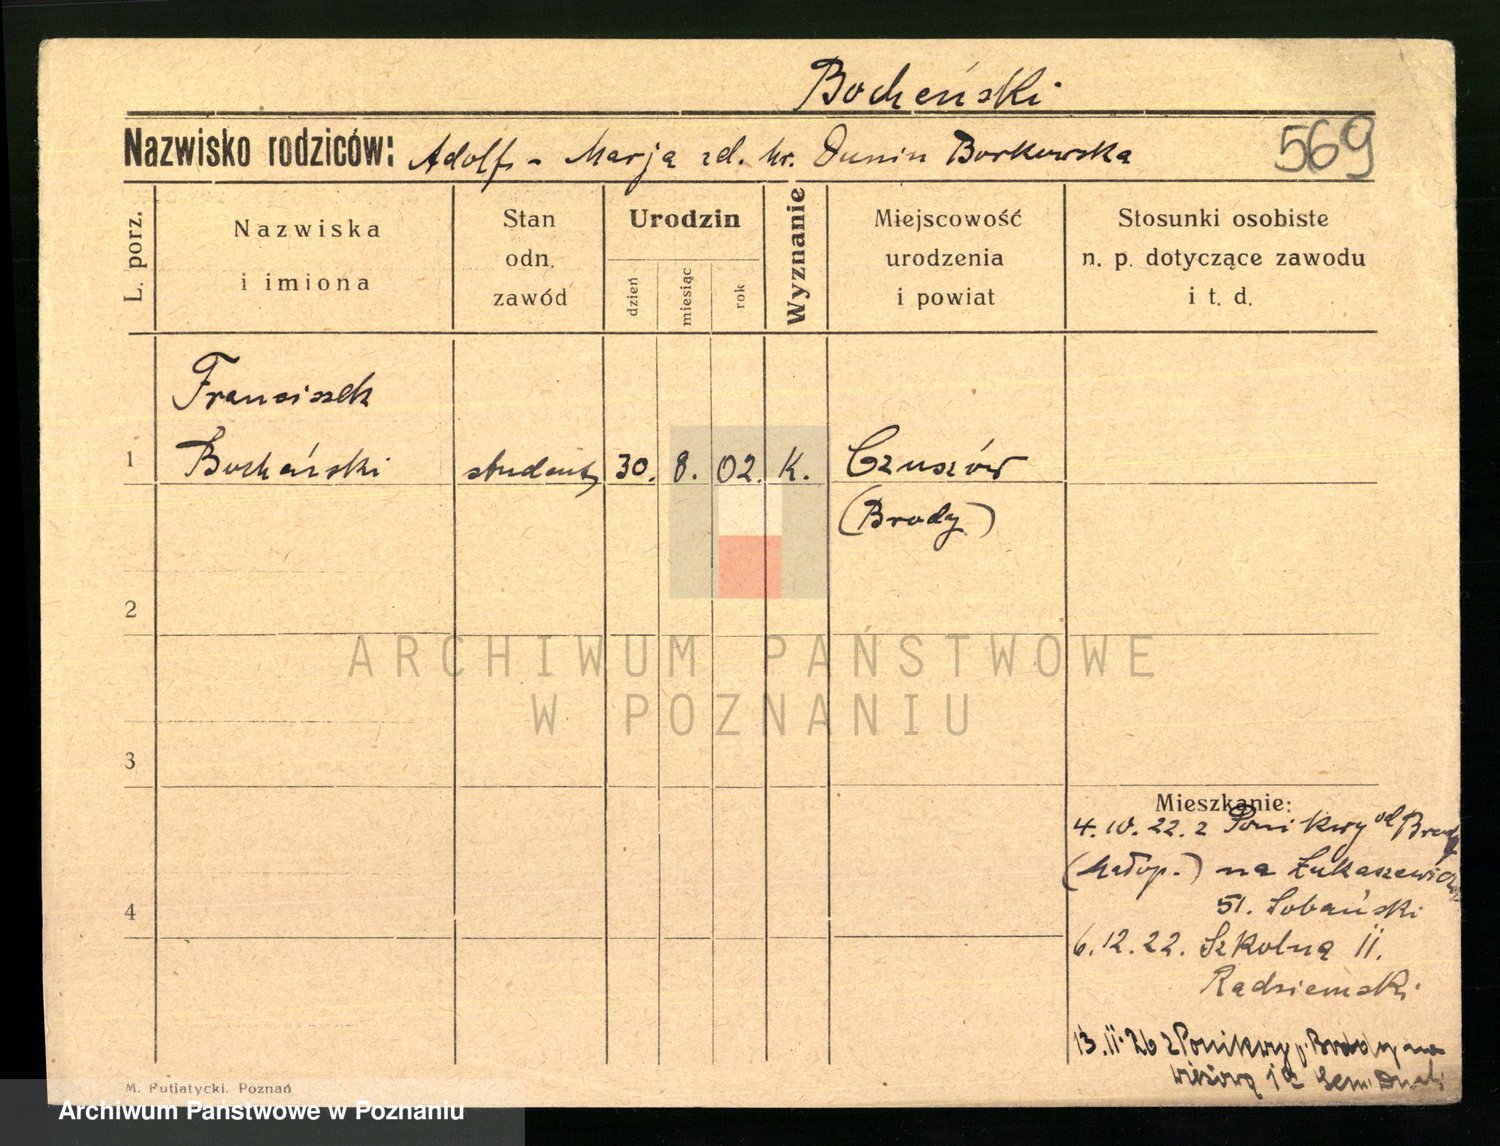 Bocheński
Nazwisko rodziców: Adolf - Marja zd. hr. Dunin Borkowska
569
L. porz.
Nazwiska
i imiona
Stan
odn.
zawód
Urodzin
dzień
miesiąc
rok
Wyznanie
Miejscowość
urodzenia
i powiat
Stosunki osobiste
n. p. dotyczące zawodu
i t. d.
Franciszek
1 Bocheński student 30. 8. 02. K. Czuszów
(Brody)
2
ARCHIWUM PAŃSTWOWE
W POZNANIU
3
Mieszkanie:
4. 10. 22. z Ponikwy Brody
(Małop.) na Łukaszewicza
4
51. Sobański
6. 12. 22. Szkolną 11.
Radziemski
13. 11. 26 z Ponikwy p. Brody na
Wieżową
M. Putiatycki. Poznań
Archiwum Państwowe w Poznaniu